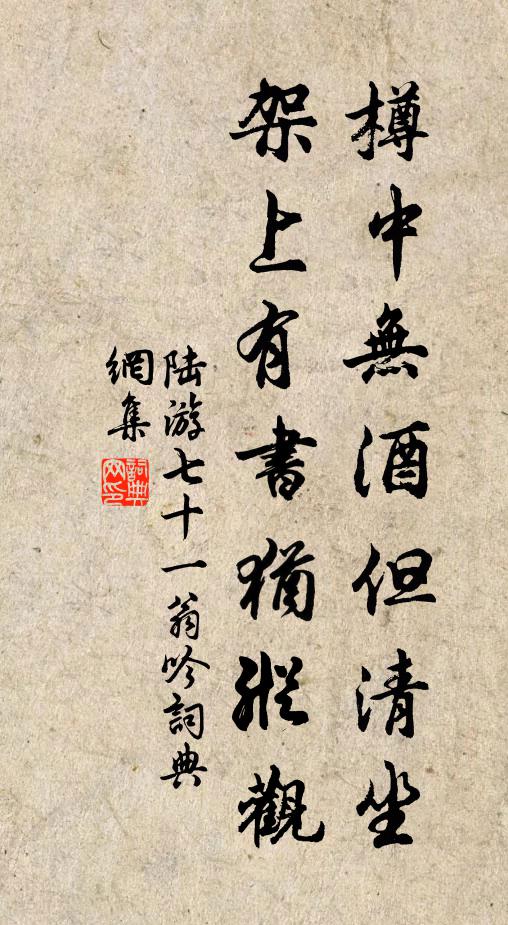 樽中無酒但清坐
架上有書猶縱觀
陸游七十一翁吟詞典
網集
詞典
网印